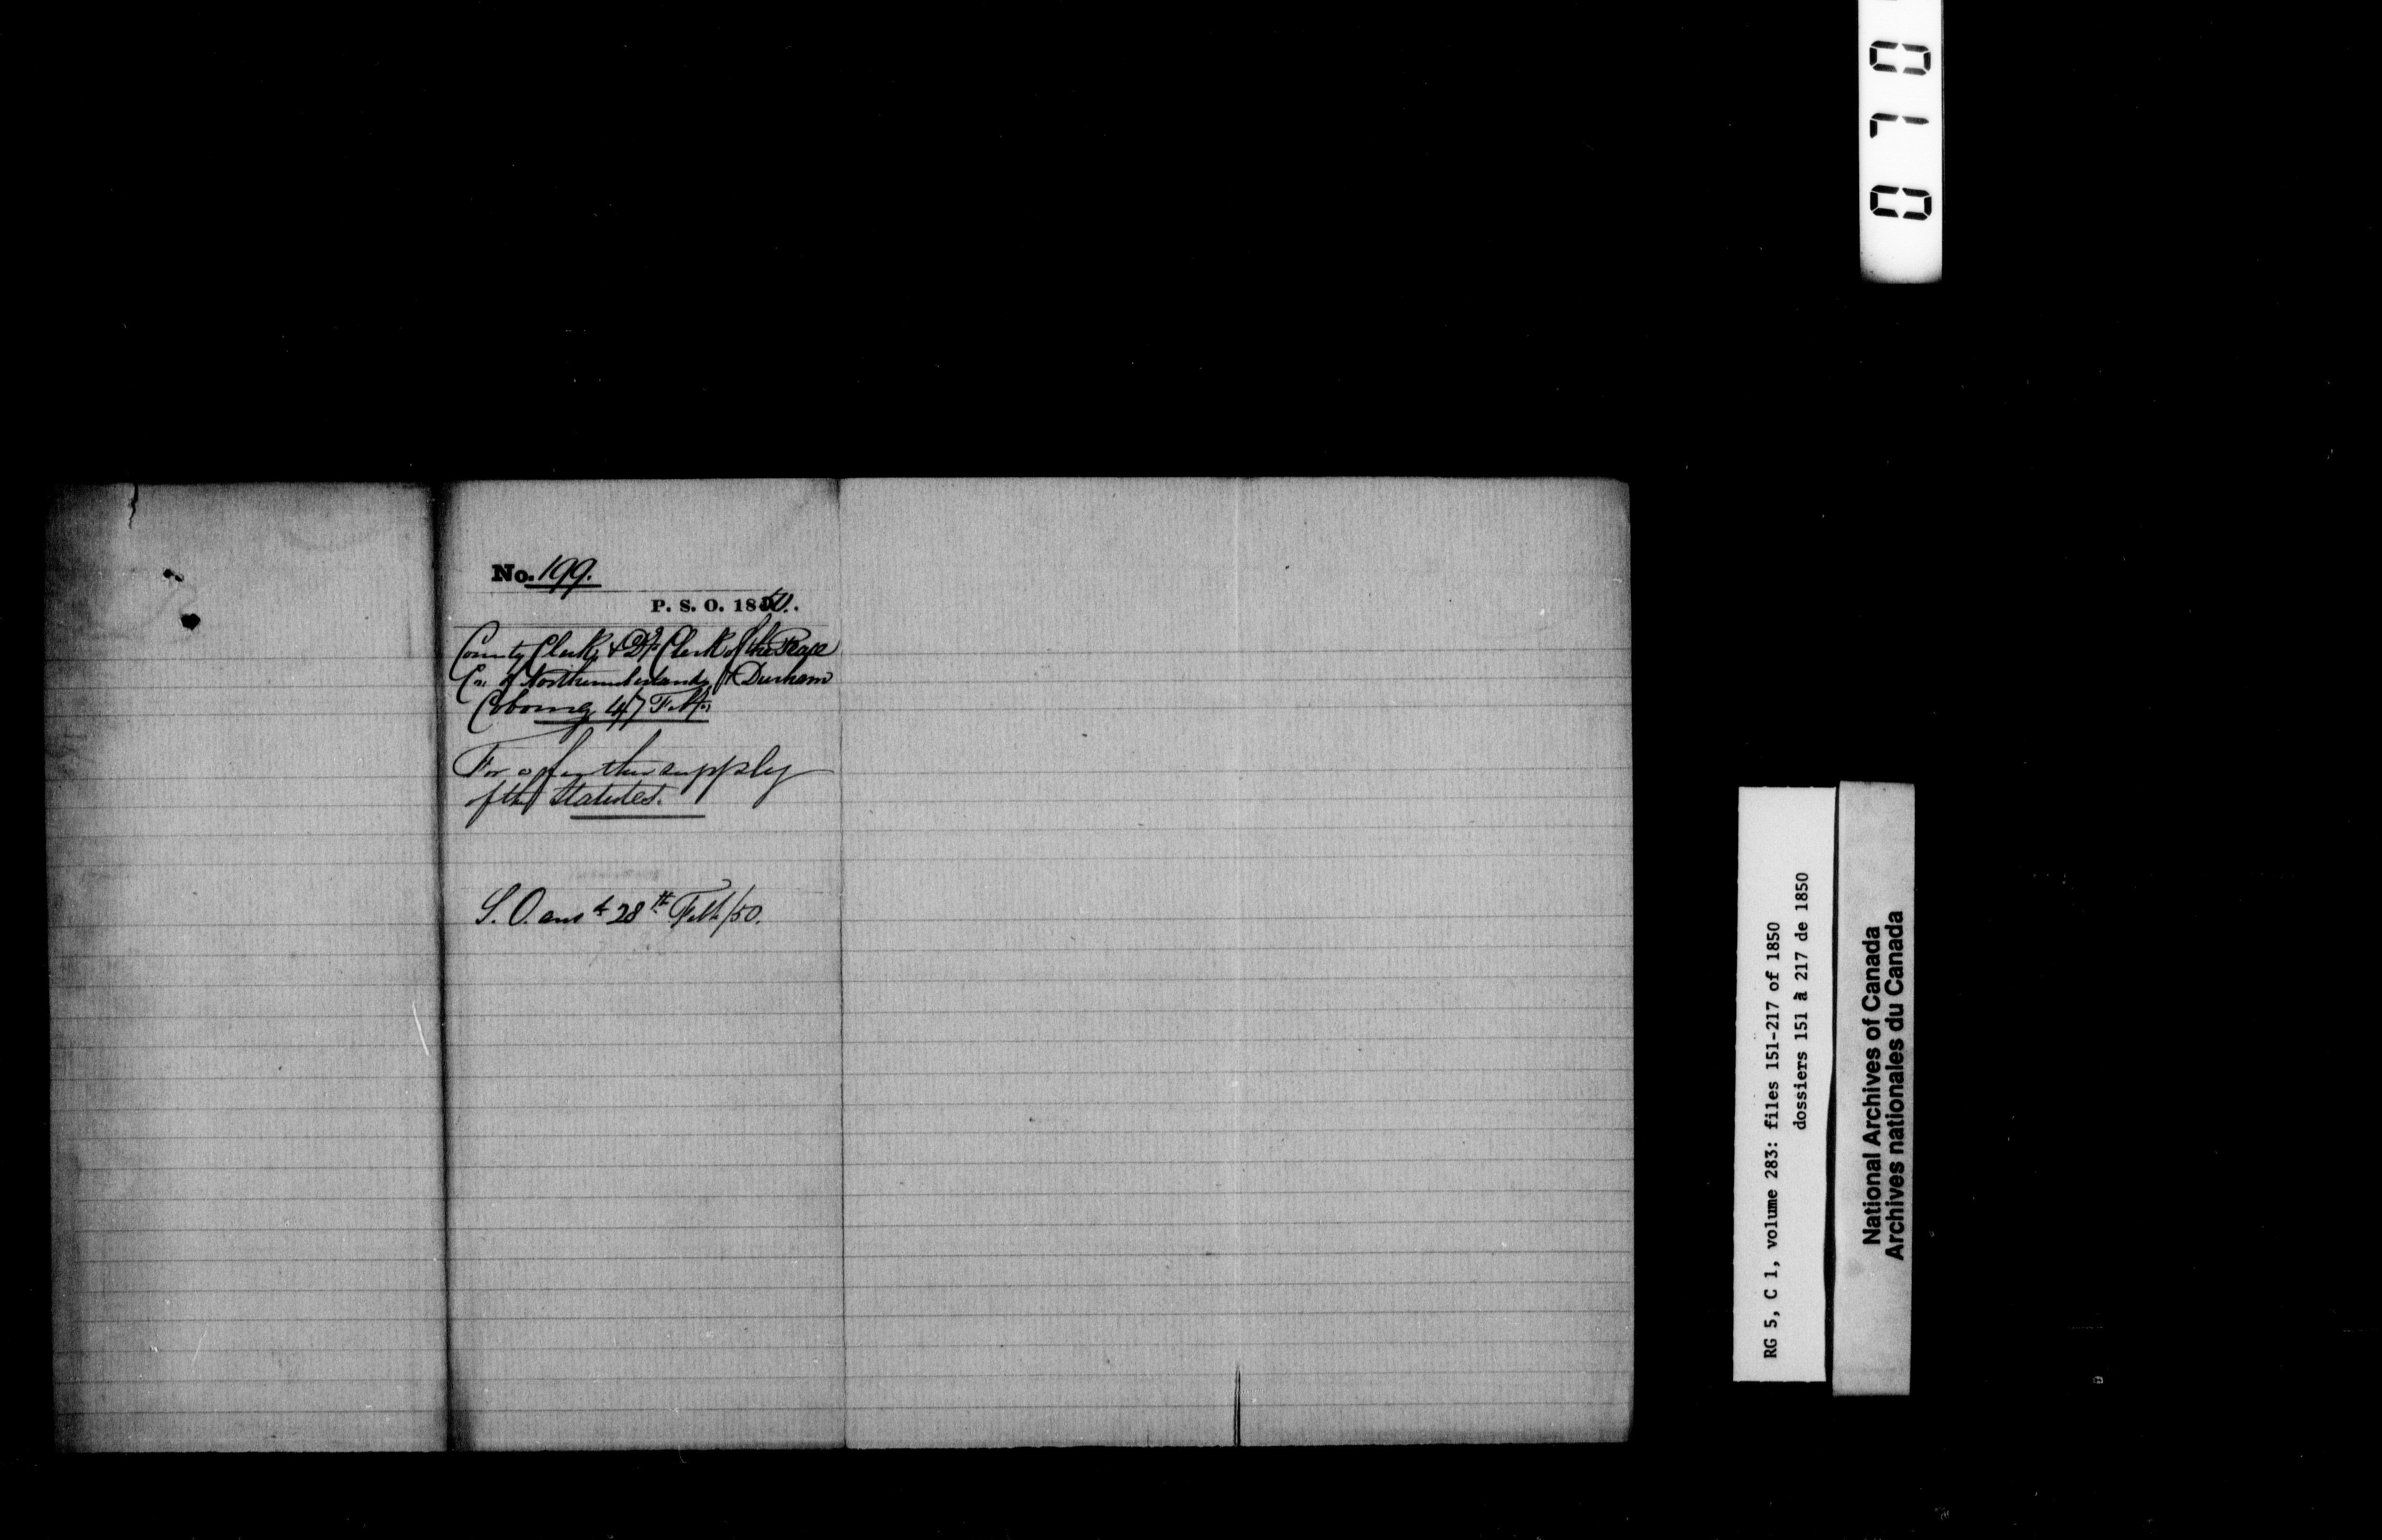 No. 199.
P. S. O. 1850.
County Clerk, & Dy. Clerk of the Peace
Co. of Northumberland & Durham
Cobourg 4/7 Feb.
For a further supply
of the Statutes.
S. O. ansd 28th Feb/50.
070
RG 5, C 1, volume 283: files 151-217 of 1850
dossiers 151 à 217 de 1850
National Archives of Canada
Archives nationales du Canada